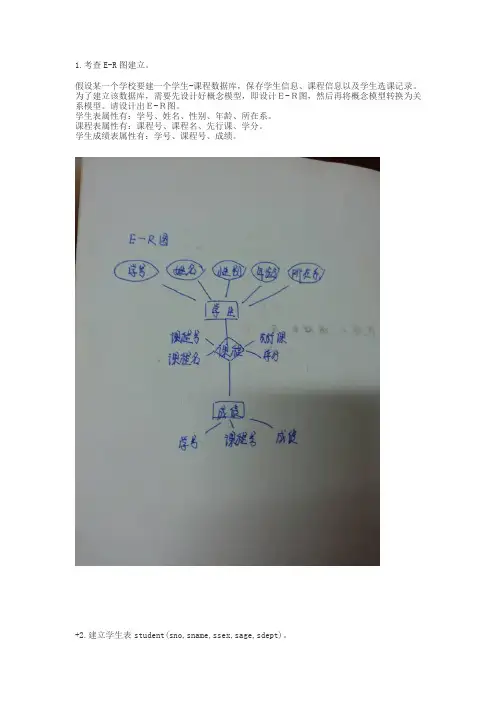 1.考查E-R图建立。
假设某一个学校要建一个学生-课程数据库，保存学生信息、课程信息以及学生选课记录。
为了建立该数据库，需要先设计好概念模型，即设计E-R图，然后再将概念模型转换为关
系模型。请设计出E-R图。
学生表属性有：学号、姓名、性别、年龄、所在系。
课程表属性有：课程号、课程名、先行课、学分。
学生成绩表属性有：学号、课程号、成绩。
E-R图
学号 姓名 性别 年龄 所在系
学生
课程号 先行课
课程
课程名 学分
成绩
学号 课程号 成绩
+2.建立学生表student(sno,sname,ssex,sage,sdept)。